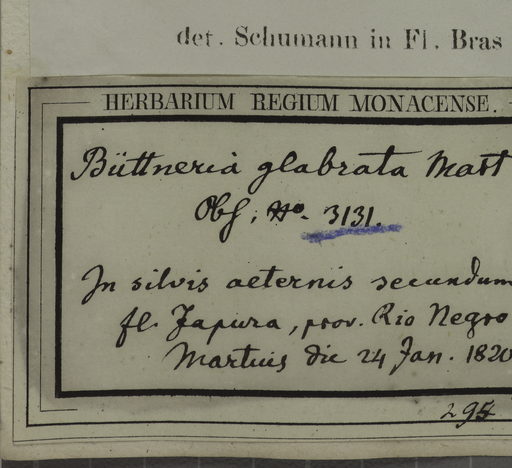 det. Schumann in Fl. Bras
HERBARIUM REGIUM MONACENSE.
Büttneria glabrata Mart
Obs. No. 3131.
In silvis aeternis secundum
fl. Japura, prov. Rio Negro
Martius die 24 Jan. 1820
295